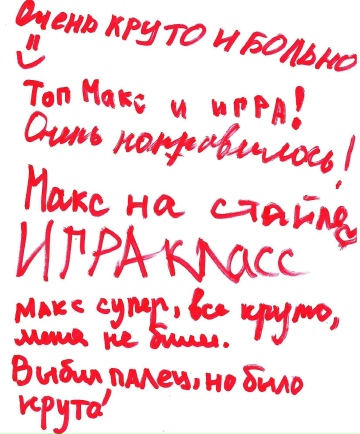 Очень круто и больно
Топ Макс и игра!
Очень нонравилось!
Макс на стайле
ИГРА КЛАСС
макс супер, все круто,
меня не били.
Выбил палец, но было
круто!